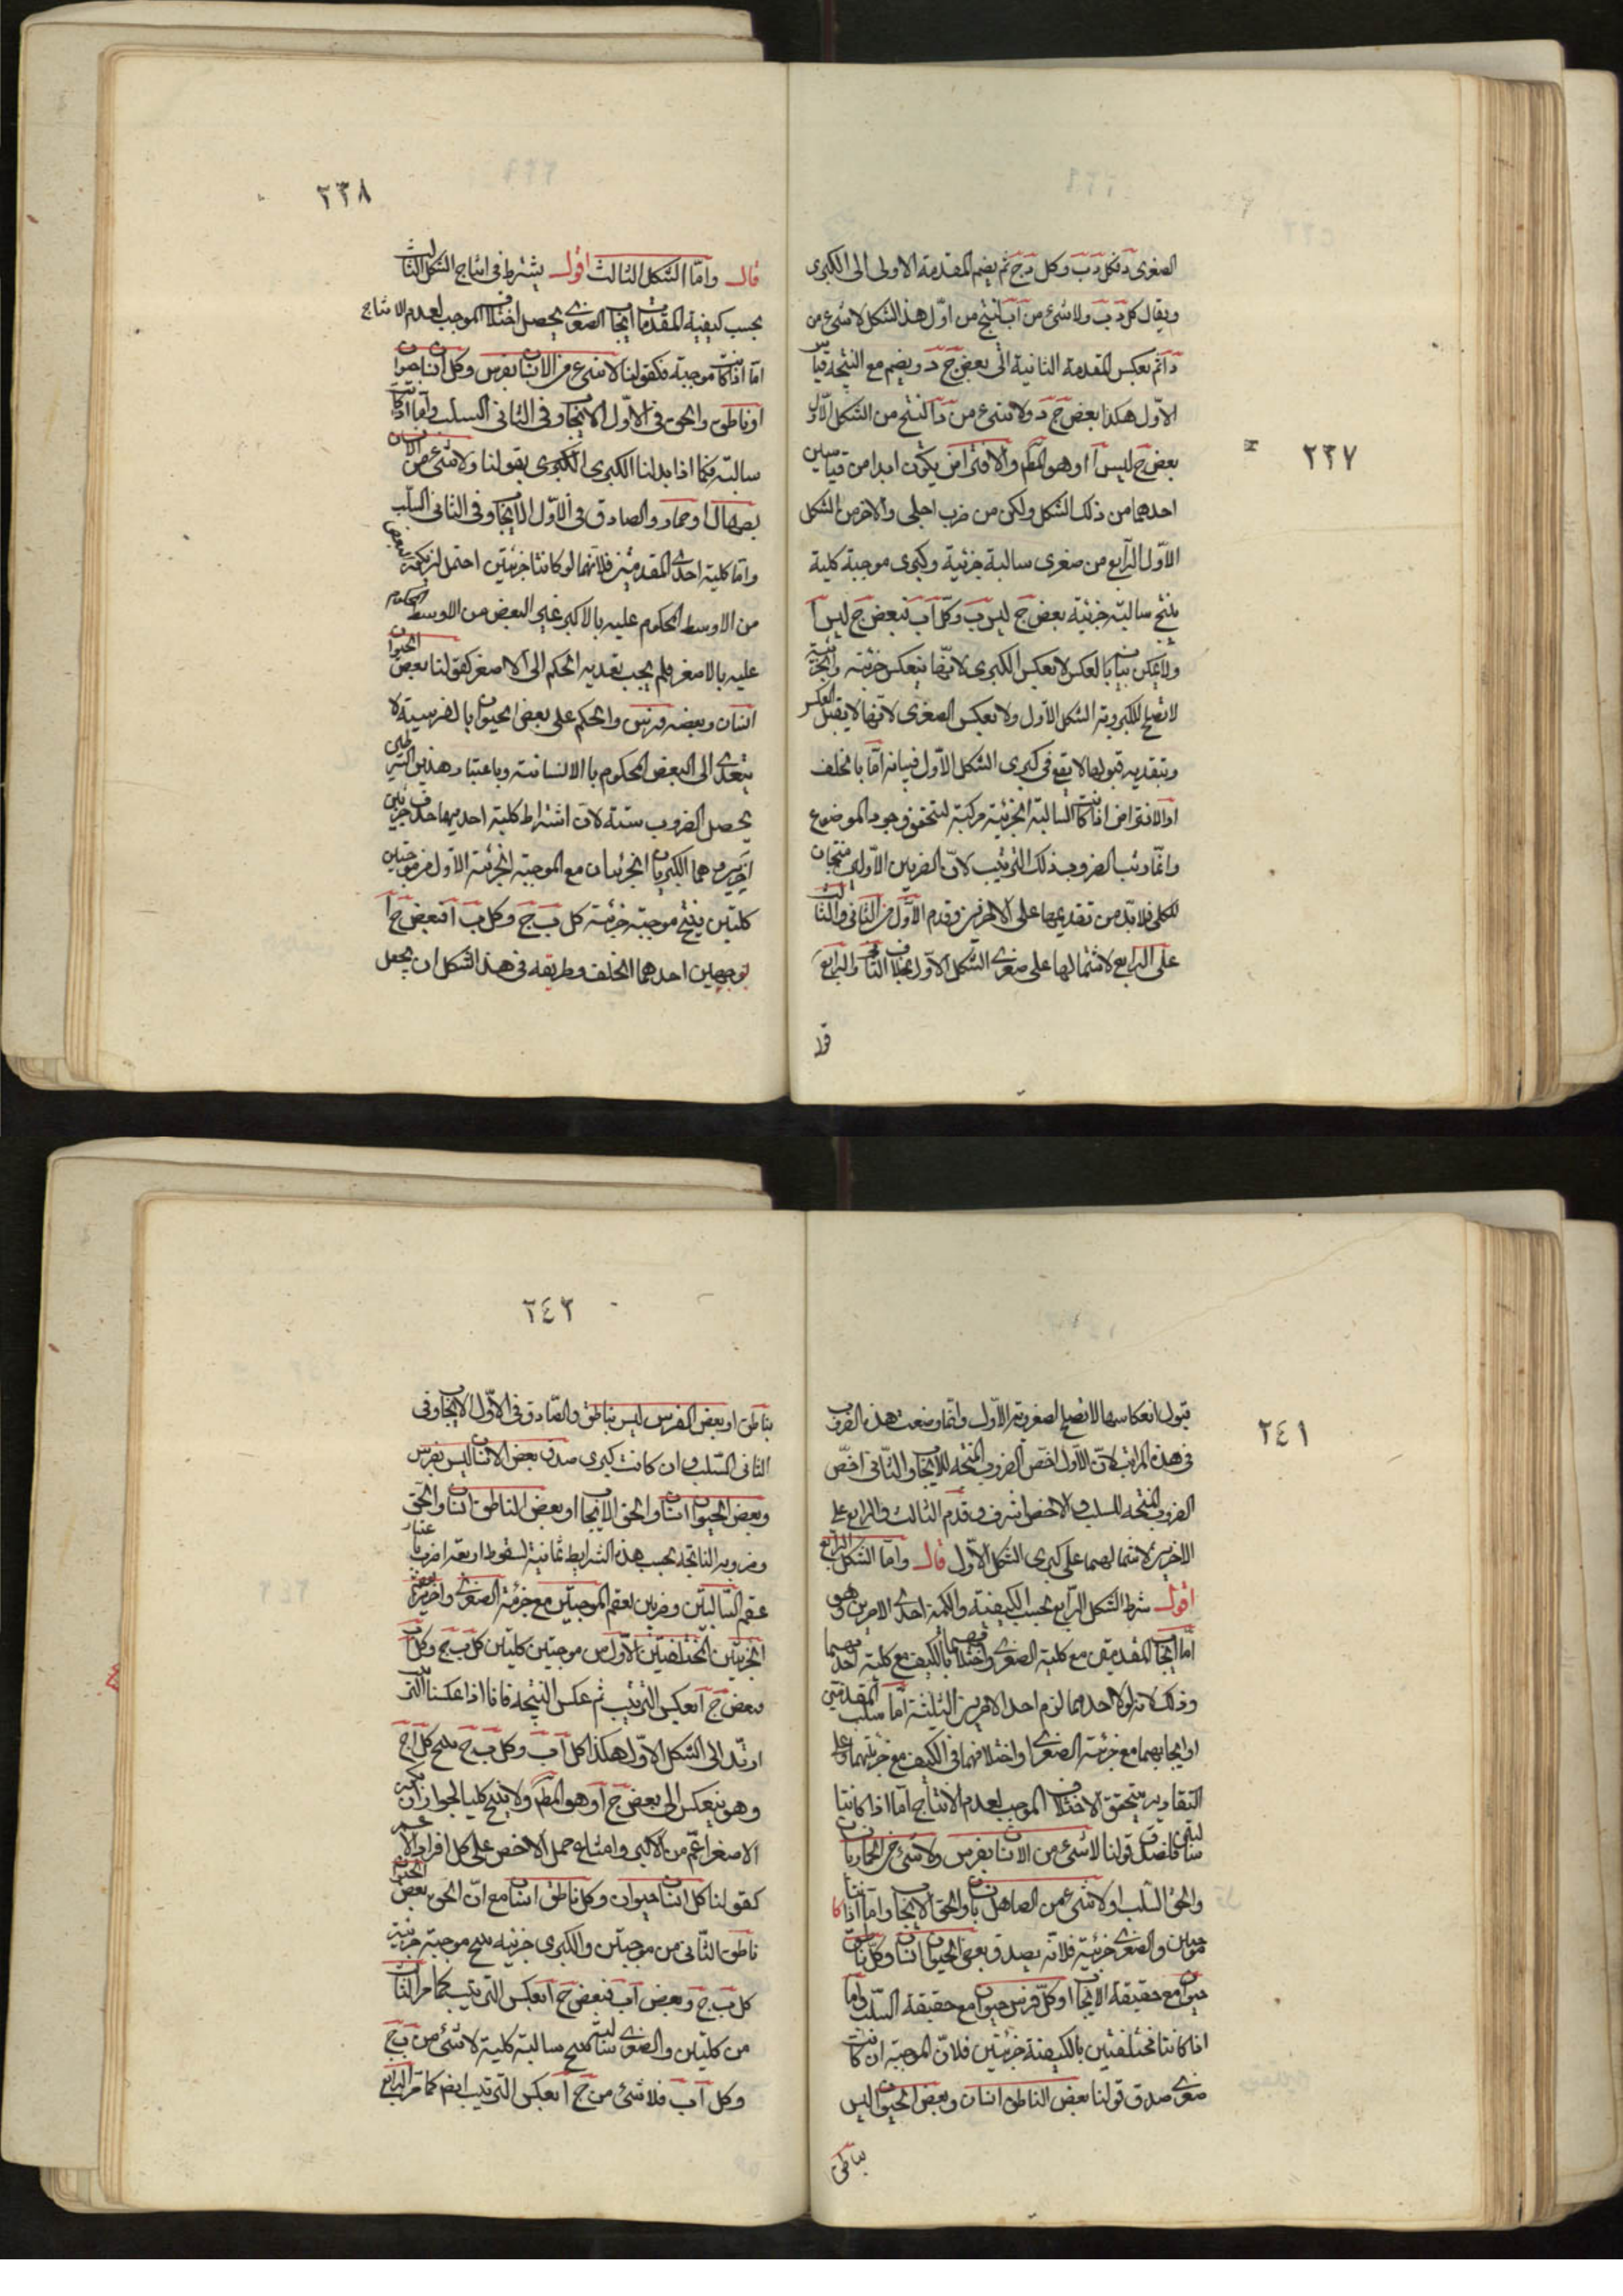 ٢٣٧
الصغرى د فكل د ب وكل د ج ثم يضم المقدمة الاولى الى الكبرى
ويقال كل د ب ولا شئ من آ ب انتج من اول هذا الشكل لا شئ من
د آ ثم بعكس المقدمة الثانية الى بعض ج د ويضم مع النتيجة قياس
الاول هكذا بعض ج د ولا شئ من د آ لنتج من الشكل الاول
بعض ج ليس آ وهو المط والافتراض يكون ابدا من قياسين
احدهما من ذلك الشكل ولكن من ضرب اجلى والاخر من الشكل
الاول الرابع من صغرى سالبة جزئية وكبرى موجبة كلية
ينتج سالبة جزئية بعض ج ليس ب وكل آ ب فبعض ج ليس آ
ولا يمكن بيانه بالعكس لا بعكس الكبرى لانها ينعكس جزئية والجزئية
لا تصلح لكبروية الشكل الاول ولا بعكس الصغرى لانها لا يقبل العكس
وبتقدير قبولها لا يقع فى كبرى الشكل الاول فبيانه اما بالخلف
او الافتراض اذا كانت السالبة الجزئية مركبة لتحقق وجود الموضوع
وانما رتب الضروب ذلك الترتيب لان الضربين الاولين منتجان
للكلى فلا بد من تقديمها على الاخرين وقدم الاول من الثانى والثالث
على الرابع لاشتمالها على صغرى الشكل الاول بخلاف الثانى والرابع
٢٣٨
قال واما الشكل الثالث اقول يشترط فى انتاج الشكل الثالث
بحسب كيفية المقدمات ايجاب الصغرى يحصل اختلاف الموجب لعدم الانتاج
اما اذا كانت موجبة فكقولنا لا شئ من الانسان بفرس وكل انسان حيوان
او ناطق والحق فى الاول الايجاب وفى الثانى السلب واما اذا كانت
سالبة فكما اذا بدلنا الكبرى الكبرى بقولنا ولا شئ من الانسان
بصهال او حمار والصادق فى الاول الايجاب وفى الثانى السلب
واما كلية احدى المقدمتين فلانهما لو كانتا جزئيتين احتمل ان يكون البعض
من الاوسط المحكوم عليه بالاكبر غير البعض من الاوسط المحكوم
عليه بالاصغر فلم يجب تعدية الحكم الى الاصغر كقولنا بعض الحيوان
انسان وبعضه فرس والحكم على بعض الحيوان بالفرسية لا
يتعدى الى البعض المحكوم بالانسانية وباعتبار هذين الشرطين
يحصل الضروب ستة لان اشتراط كلية احديهما حذف ضربين
اخرين وهما الكبريان الجزئيتان مع الموجبة الجزئية الاول من موجبتين
كليتين ينتج موجبة جزئية كل ب ج وكل ب آ فبعض ج آ
بوجهين احدهما الخلف وطريقه فى هذا الشكل ان يجعل
٢٤١
قبول انعكاسها لا تصلح لصغروية الاول وانما وضعت هذه الضروب
فى هذه المراتب لان الاول اخص الضروب المنتجة للايجاب والثانى اخص
الضروب المنتجة للسلب والاخص اشرف وقدم الثالث والرابع على
الاخيرين لاشتمالهما على كبرى الشكل الاول قال واما الشكل الرابع
اقول شرط الشكل الرابع بحسب الكيفية والكمية احدى الامرين وهو
اما ايجاب المقدمتين مع كلية الصغرى واختلافهما بالكيف مع كلية احديهما
وذلك لانه لولا احدهما لزم احد الامور الثلثة اما سلب المقدمتين
او ايجابهما مع جزئية الصغرى او اختلافهما فى الكيف مع جزئيتهما وعلى
التقادير يتحقق الاختلاف الموجب لعدم الانتاج اما اذا كانتا
سالبتين فلصدق قولنا لا شئ من الانسان بفرس ولا شئ من الحمار بانسان
والحق السلب او لا شئ من الصاهل بانسان والحق الايجاب واما اذا كانتا
موجبتين والصغرى جزئية فلانه يصدق بعض الحيوان انسان وكل ناطق
حيوان مع حقيقة الايجاب او كل فرس حيوان مع حقيقة السلب واما
اذا كانتا مختلفتين بالكيفية جزئيتين فلان الموجبة ان كانت
صغرى صدق قولنا بعض الناطق انسان وبعض الحيوان ليس
بناطق
٢٤٢
بناطق او بعض الفرس ليس بناطق والصادق فى الاول الايجاب وفى
الثانى السلب وان كانت كبرى صدق بعض الانسان ليس بفرس
وبعض الحيوان انسان والحق الايجاب او بعض الناطق انسان والحق
وضروبه الناتجة بحسب هذه الشرايط ثمانية لسقوط اربعة اضرب باعتبار
عقم السالبتين وضربين لعقم الموجبتين مع جزئية الصغرى واخرين لعقم
الجزئيتين المختلفتين الاول من موجبتين كليتين كل ب ج وكل آ ب
فبعض ج آ بعكس الترتيب ثم عكس النتيجة فانا اذا عكسنا الترتيب
ارتد الى الشكل الاول هكذا كل آ ب وكل ب ج ينتج كل آ ج
وهو ينعكس الى بعض ج آ وهو المط ولا ينتج كليا لجواز ان يكون
الاصغر اعم من الاكبر وامتناع حمل الاخص على كل افراد الاعم
كقولنا كل انسان حيوان وكل ناطق انسان مع ان الحق بعض الحيوان
ناطق الثانى من موجبتين والكبرى جزئية ينتج موجبة جزئية
كل ب ج وبعض آ ب فبعض ج آ بعكس الترتيب كما مر الثالث
من كليتين والصغرى سالبة ينتج سالبة كلية لا شئ من ب ج
وكل آ ب فلا شئ من ج آ بعكس الترتيب ايضم كما مر الرابع